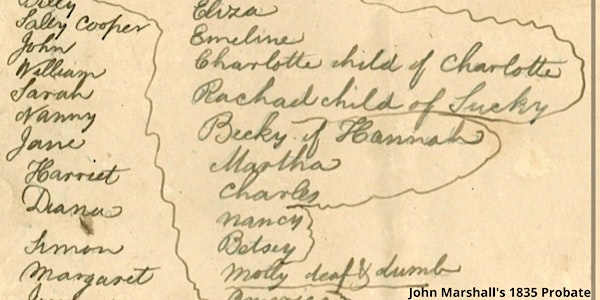 Billy
Sally Cooper
John
William
Sarah
Nanny
Jane
Harriet
Diana
Simon
Margaret
Eliza
Emeline
Charlotte child of Charlotte
Rachad child of Sucky
Becky of Hannah
Martha
Charles
Nancy
Betsey
Molly deaf & dumb
John Marshall's 1835 Probate